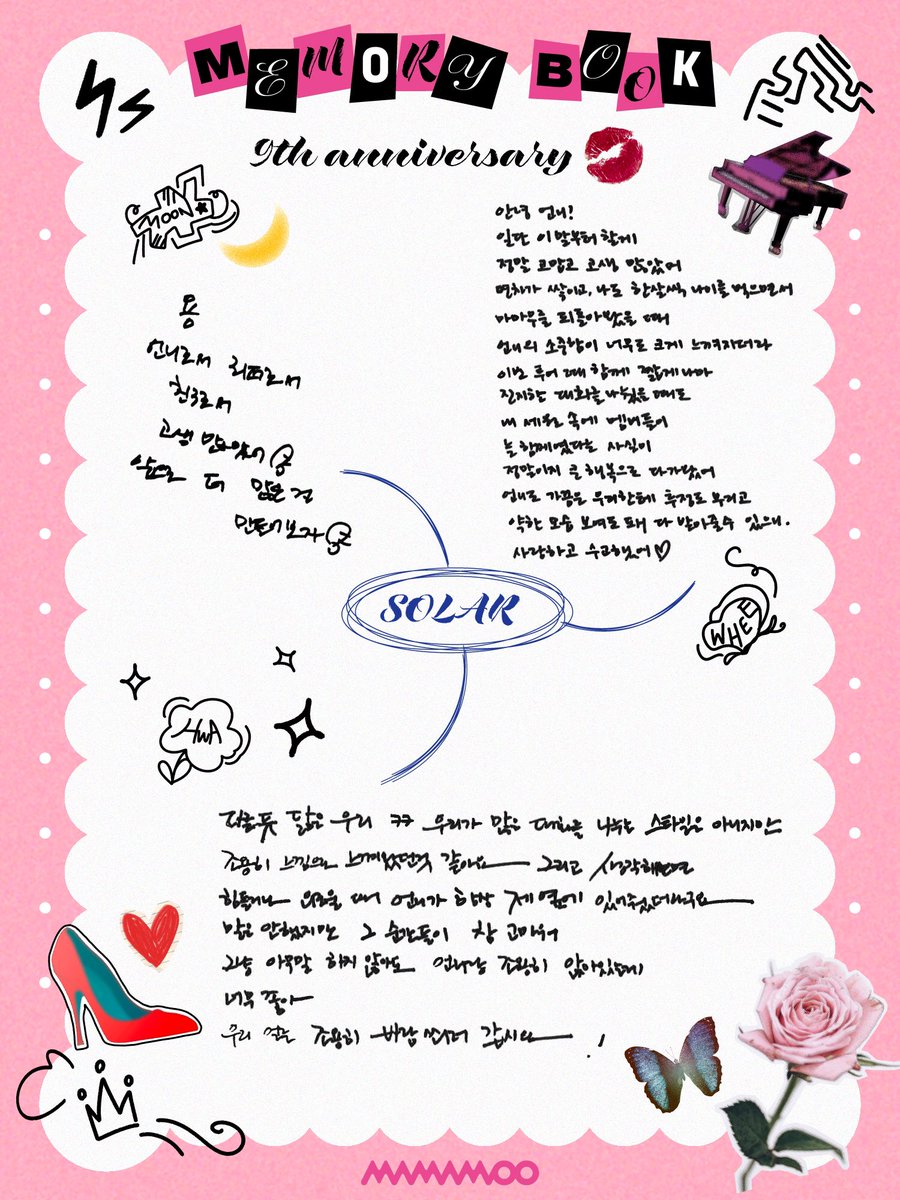 MEMORY BOOK
9th anniversary
MOON
용
언니로서 리더로서
친구로서
고생 많았어
앞으로 더 많은 걸
만들어보자
안녕 언니!
일단 이 말부터 할게
정말 고맙고 고생 많았어
연차가 쌓이고, 나도 한살씩 나이를 먹으면서
마마무를 되돌아봤을 때
언니의 소중함이 너무도 크게 느껴지더라
이번 투어 때 함께 짧게나마
진지한 대화를 나눴을 때도
내 세월 속에 멤버들이
늘 함께였다는 사실이
정말이지 큰 행복으로 다가왔어
언제든 가끔은 우리한테 투정도 부리고
약한 모습 보여도 돼 다 받아줄 수 있으니.
사랑하고 수고했어♡
SOLAR
WHEE
HWA
다른듯 닮은 우리 ㅋㅋ 우리가 많은 대화를 나누는 스타일은 아니지만
조용히 느낌으로 느껴왔던것 같아요 그리고 생각해보면
힘들거나 외로울 때 언니가 항상 제 옆에 있어줬더라구요
말은 안했지만 그 순간들이 참 고마워
그냥 아무말 하지 않아도 언니랑 조용히 앉아있는게
너무 좋아
우리 얼른 조용히 바람 쐬러 갑시다 !
MAMAMOO